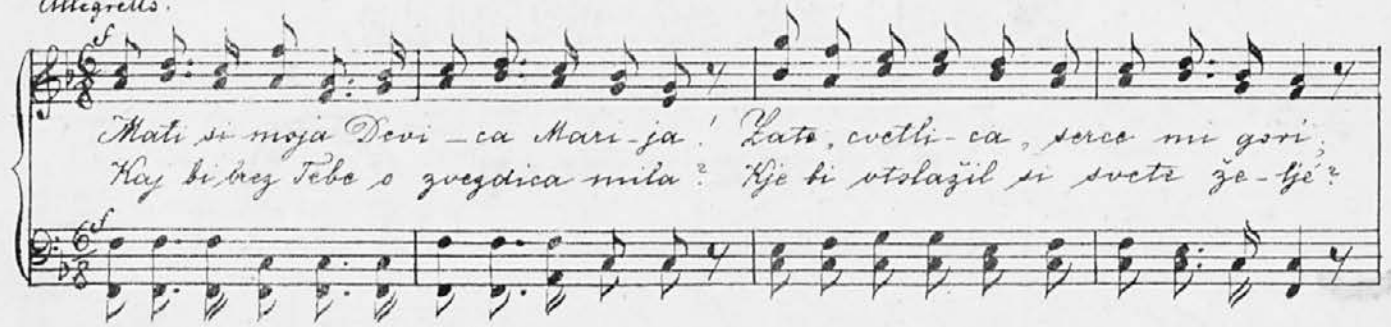 Allegretto.
Mati si moja Devi-ca Mari-ja! Zato, cvetli-ca, serce mi gori;
Kaj bi brez Tebe o zvezdica mila? Kje bi vtolažil si svete že-lje?